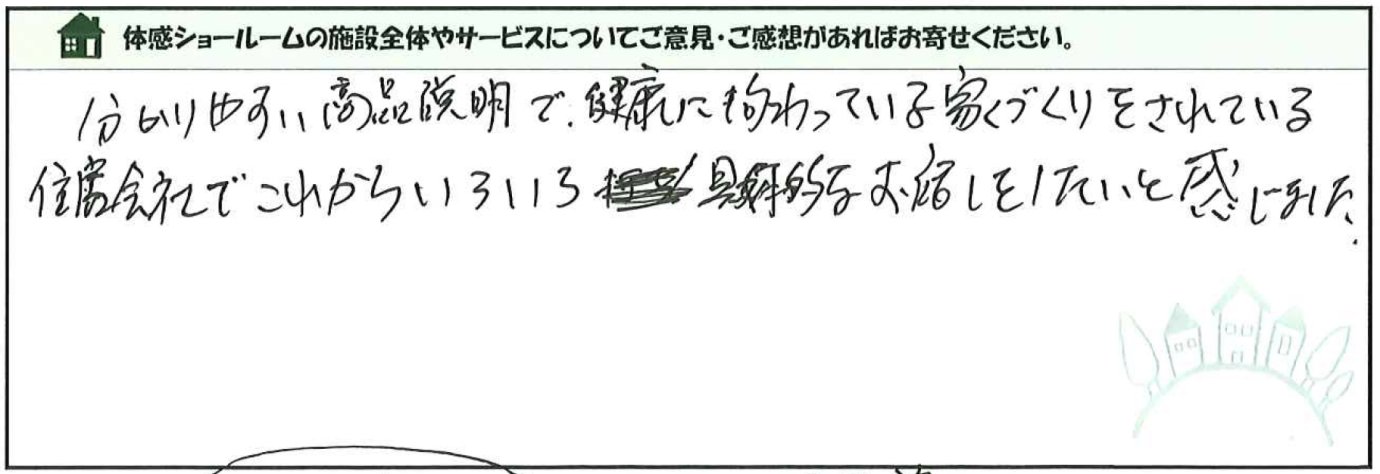 体感ショールームの施設全体やサービスについてご意見・ご感想があればお寄せください。
分かりやすい商品説明で、健康に拘わっている家づくりをされている
住宅会社でこれからいろいろ具体的なお話しをしたいと感じました。